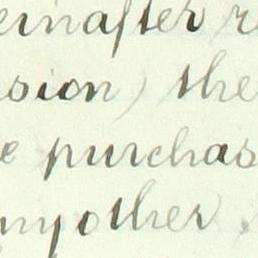 einafter re
sion) the
e purchas
ny other